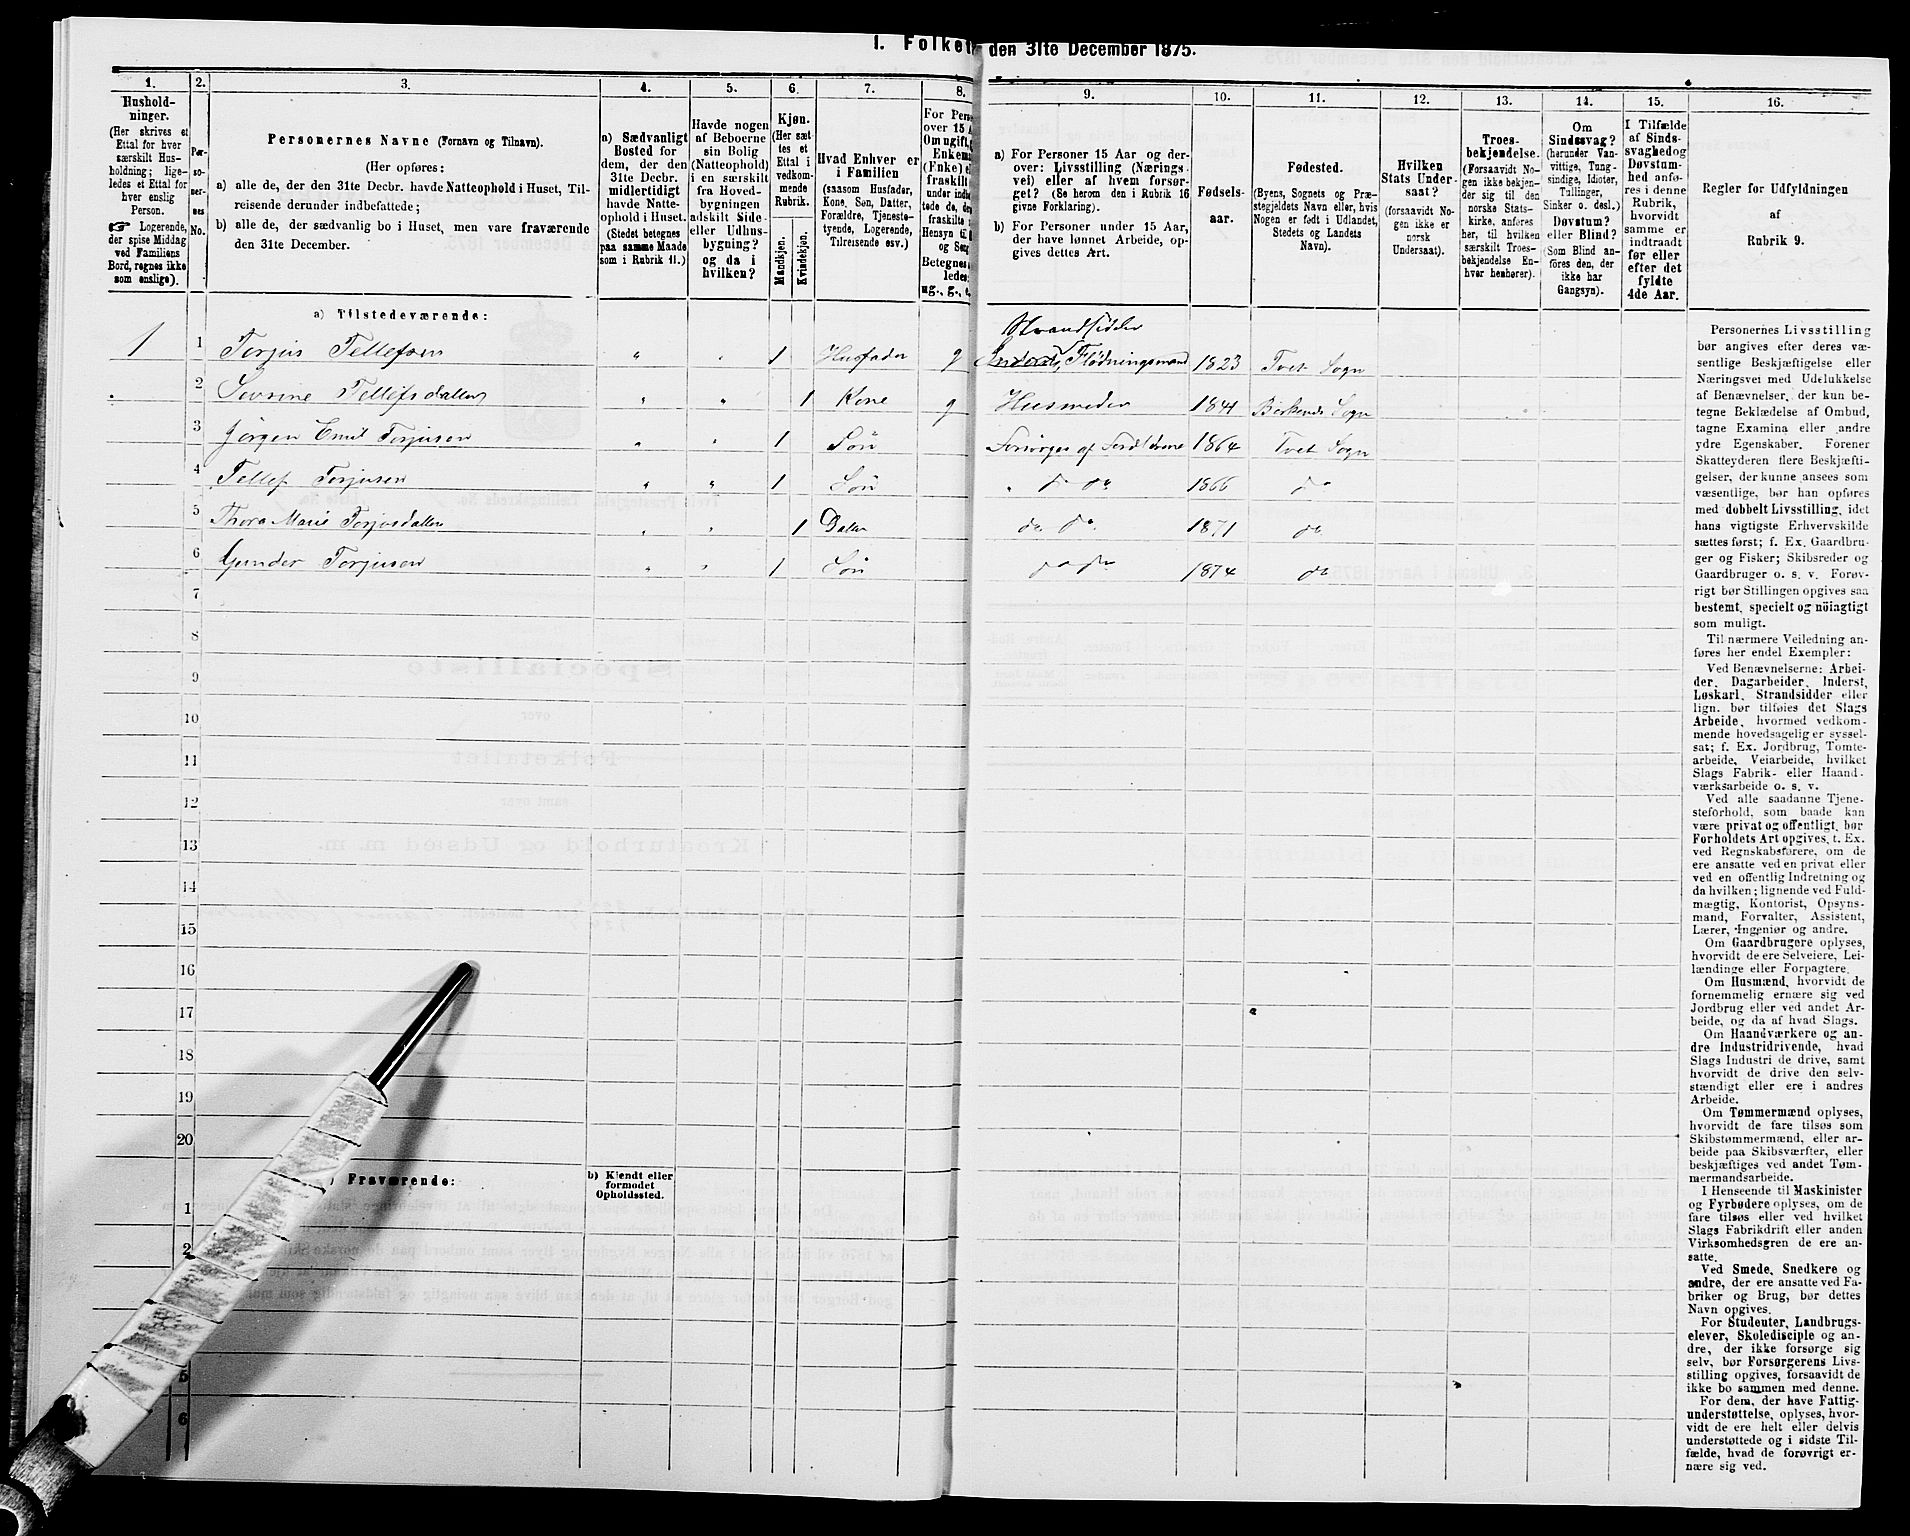 1. Folket den 31te December 1875.
1.
Hushold-
ninger.
(Her skrives et
Ettal for hver
særskilt Hus-
holdning; lige-
ledes et Ettal for
hver enslig
Person.
☞ Logerende,
der spise Middag
ved Familiens
Bord, regnes ikke
som enslige).
2.
Per-
so-
ner-
nes
No.
3.
Personernes Navne (Fornavn og Tilnavn).
(Her opføres:
a) alle de, der den 31te Decbr. havde Natteophold i Huset, Til-
reisende derunder indbefattede;
b) alle de, der sædvanlig bo i Huset, men vare fraværende
den 31te December.
4.
a) Sædvanligt
Bosted for
dem, der den
31te Decbr.
midlertidigt
havde Natte-
ophold i Huset.
(Stedet betegnes
paa samme Maade
som i Rubrik 11.)
5.
Havde nogen
af Beboerne
sin Bolig
(Natteophold)
i en særskilt
fra Hoved-
bygningen
adskilt Side-
eller Udhus-
bygning?
og da i
hvilken?
6.
Kjøn.
(Her sæt-
tes et
Ettal i
vedkom-
mende
Rubrik.
Mandkjøn.
Kvindekjøn.
7.
Hvad Enhver er
i Familien
(saasom Husfader,
Kone, Søn, Datter,
Forældre, Tjeneste-
tyende, Logerende,
Tilreisende osv.)
8.
For Pers
over 15 A
Om ugift,
Enkem
(Enke) e
fraskilt
under indb
tede de, de
fraskilte
Hensyn til
og Sen
Betegnes
ledes:
ug., g., e
9.
a) For Personer 15 Aar og der-
over: Livsstilling (Nærings-
vei) eller af hvem forsør-
get? (Se herom den i Rubrik 16
givne Forklaring).
b) For Personer under 15 Aar,
der have lønnet Arbeide, op-
gives dettes Art.
10.
Fødsels-
aar.
11.
Fødested.
(Byens, Sognets og Præ-
stegjeldets Navn eller, hvis
Nogen er født i Udlandet,
Stedets og Landets
Navn).
12.
Hvilken
Stats Under-
saat?
(forsaavidt No-
gen ikke er
norsk
Undersaat).
13.
Troes-
bekjendelse.
(Forsaavidt No-
gen ikke bekjen-
der sig til den
norske Stats-
kirke, anføres
her, til hvilken
særskilt Troes-
bekjendelse En-
hver henhører).
14.
Om
Sindssvag?
(herunder Van-
vittige, Tung-
sindige, Idioter,
Tullinger,
Sinker o. desl.)
Døvstum?
eller Blind?
(Som Blind an-
føres den, der
ikke har
Gangsyn).
15.
I Tilfælde
af Sinds-
svaghed og
Døvstum-
hed anfø-
res i denne
Rubrik,
hvorvidt
samme er
indtraadt
før eller
efter det
fyldte
4de Aar.
16.
Regler for Udfyldningen
af
Rubrik 9.
a) Tilstedeværende:
Strandsidder
1 1 Torjus Tellefsen " " 1 Husfader g Inderst, Flödningsmand 1823 Tvet Sogn
2 Sevrine Tellefsdatter " " 1 Kone g Husmoder 1841 Birkenæs Sogn
3 Jörgen Emil Torjusen " " 1 Sön Forsörges af Forældrene 1864 Tvet Sogn
4 Tellef Torjusen " " 1 Sön " do do 1866 do
5 Thora Marie Torjusdatter " " 1 Datter do. do. 1871 do
6 Gunder Torjusen " " 1 Sön do do 1874 do
7
8
9
10
11
12
13
14
15
16
17
18
19
20
Fraværende:
b) Kjendt eller
formodet
Opholdssted.
1
2
5
6
Personernes Livsstilling
bør angives efter deres væ-
sentlige Beskjæftigelse eller
Næringsvei med Udelukkelse
af Benævnelser, der kun be-
tegne Beklædelse af Ombud,
tagne Examina eller andre
ydre Egenskaber. Forener
Skatteyderen flere Beskjæfti-
gelser, der kunne ansees som
væsentlige, bør han opføres
med dobbelt Livsstilling, idet
hans vigtigste Erhvervskilde
sættes først; f. Ex. Gaardbru-
ger og Fisker; Skibsreder og
Gaardbruger o. s. v. Forøv-
rigt bør Stillingen opgives saa
bestemt, specielt og nöiagtigt
som muligt.
Til nærmere Veiledning an-
føres her endel Exempler:
Ved Benævnelserne: Arbei-
der, Dagarbeider, Inderst,
Løskarl, Strandsidder eller
lign. bør tilføies det Slags
Arbeide, hvormed vedkom-
mende hovedsagelig er syssel-
sat; f. Ex. Jordbrug, Tomte-
arbeide, Veiarbeide, hvilket
Slags Fabrik- eller Haand-
værksarbeide o. s. v.
Ved alle saadanne Tjene-
steforhold, som baade kan
være privat og offentligt, bør
Forholdets Art opgives, t. Ex.
ved Regnskabsførere, om de
ere ansatte ved en privat eller
ved en offentlig Indretning og
da hvilken; lignende ved Fuld-
mægtig, Kontorist, Opsyns-
mand, Forvalter, Assistent,
Lærer, Ingeniør og andre.
Om Gaardbrugere oplyses,
hvorvidt de ere Selveiere, Lei-
lændinge eller Forpagtere.
Om Husmænd, hvorvidt de
fornemmelig ernære sig ved
Jordbrug eller ved andet Ar-
beide, og da af hvad Slags.
Om Haandværkere og an-
dre Industridrivende, hvad
Slags Industri de drive, samt
hvorvidt de drive den selv-
stændigt eller ere i andres
Arbeide.
Om Tømmermænd oplyses,
hvorvidt de fare tilsøs som
Skibstømmermænd, eller ar-
beide paa Skibsværfter, eller
beskjæftiges ved andet Tøm-
mermandsarbeide.
I Henseende til Maskinister
og Fyrbødere oplyses, om de
fare tilsøs eller ved hvilket
Slags Fabrikdrift eller anden
Virksomhedsgren de ere an-
satte.
Ved Smede, Snedkere og
andre, der ere ansatte ved Fa-
briker og Brug, bør dettes
Navn opgives.
For Studenter, Landbrugs-
elever, Skoledisciple og an-
dre, der ikke forsørge sig
selv, bør Forsørgerens Livs-
stilling opgives, forsaavidt de
ikke bo sammen med denne.
For dem, der have Fattig-
understøttelse, oplyses, hvor-
vidt de ere helt eller delvis
understøttede og i sidste Til-
fælde, hvad de forøvrigt er-
nære sig ved.